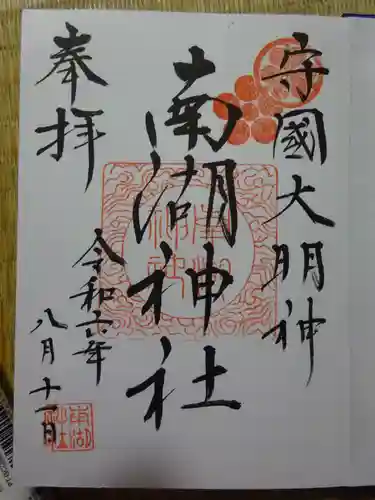 守國大明神
南湖神社
奉拝
令和六年
八月十一日
南湖神社